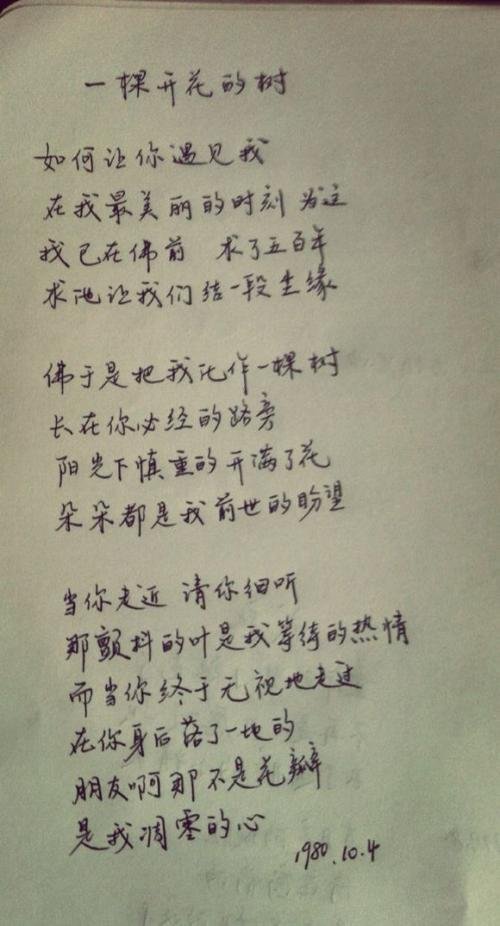 一棵开花的树
如何让你遇见我
在我最美丽的时刻 为这
我已在佛前 求了五百年
求他让我们结一段尘缘
佛于是把我化作一棵树
长在你必经的路旁
阳光下慎重的开满了花
朵朵都是我前世的盼望
当你走近 请你细听
那颤抖的叶是我等待的热情
而当你终于无视地走过
在你身后落了一地的
朋友啊那不是花瓣
是我凋零的心
1980.10.4